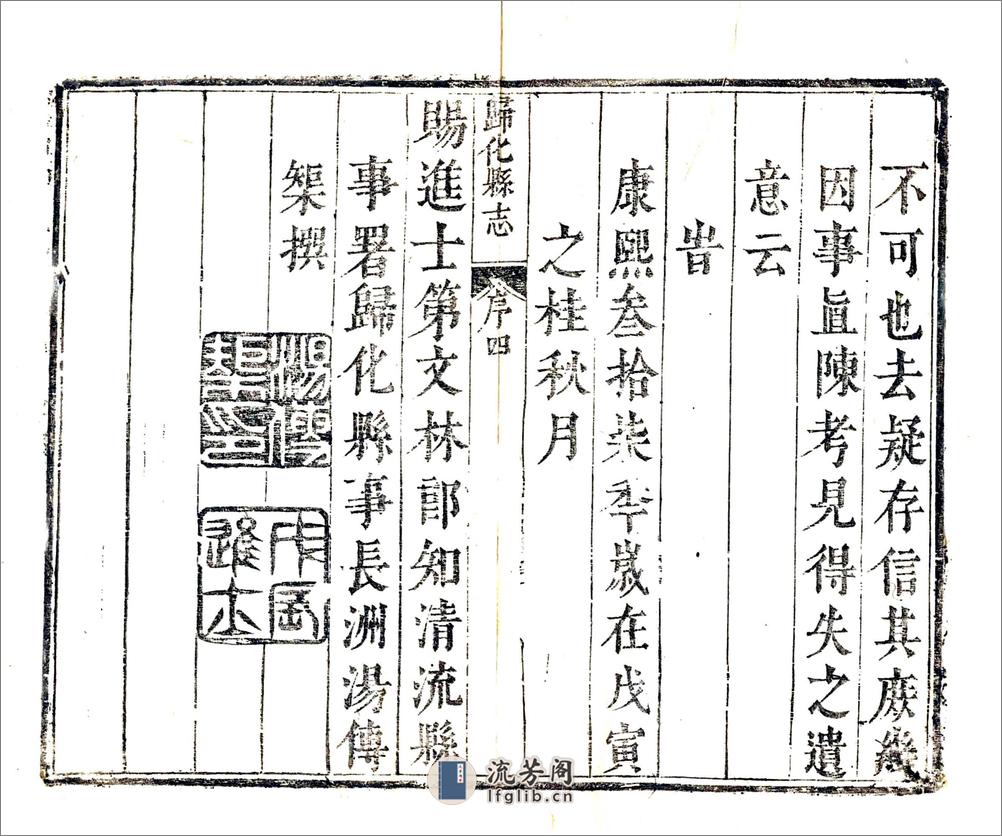 不可也去疑存信其庻幾
因事直陳考見得失之遺
意云
旹
康熙叁拾柒秊嵗在戊寅
之桂秋月
歸化縣志
序四
賜進士第文林郎知清流縣
事署歸化縣事長洲湯傳
榘撰
湯傳榘印
戊辰進士
流芳阁
lfglib.cn